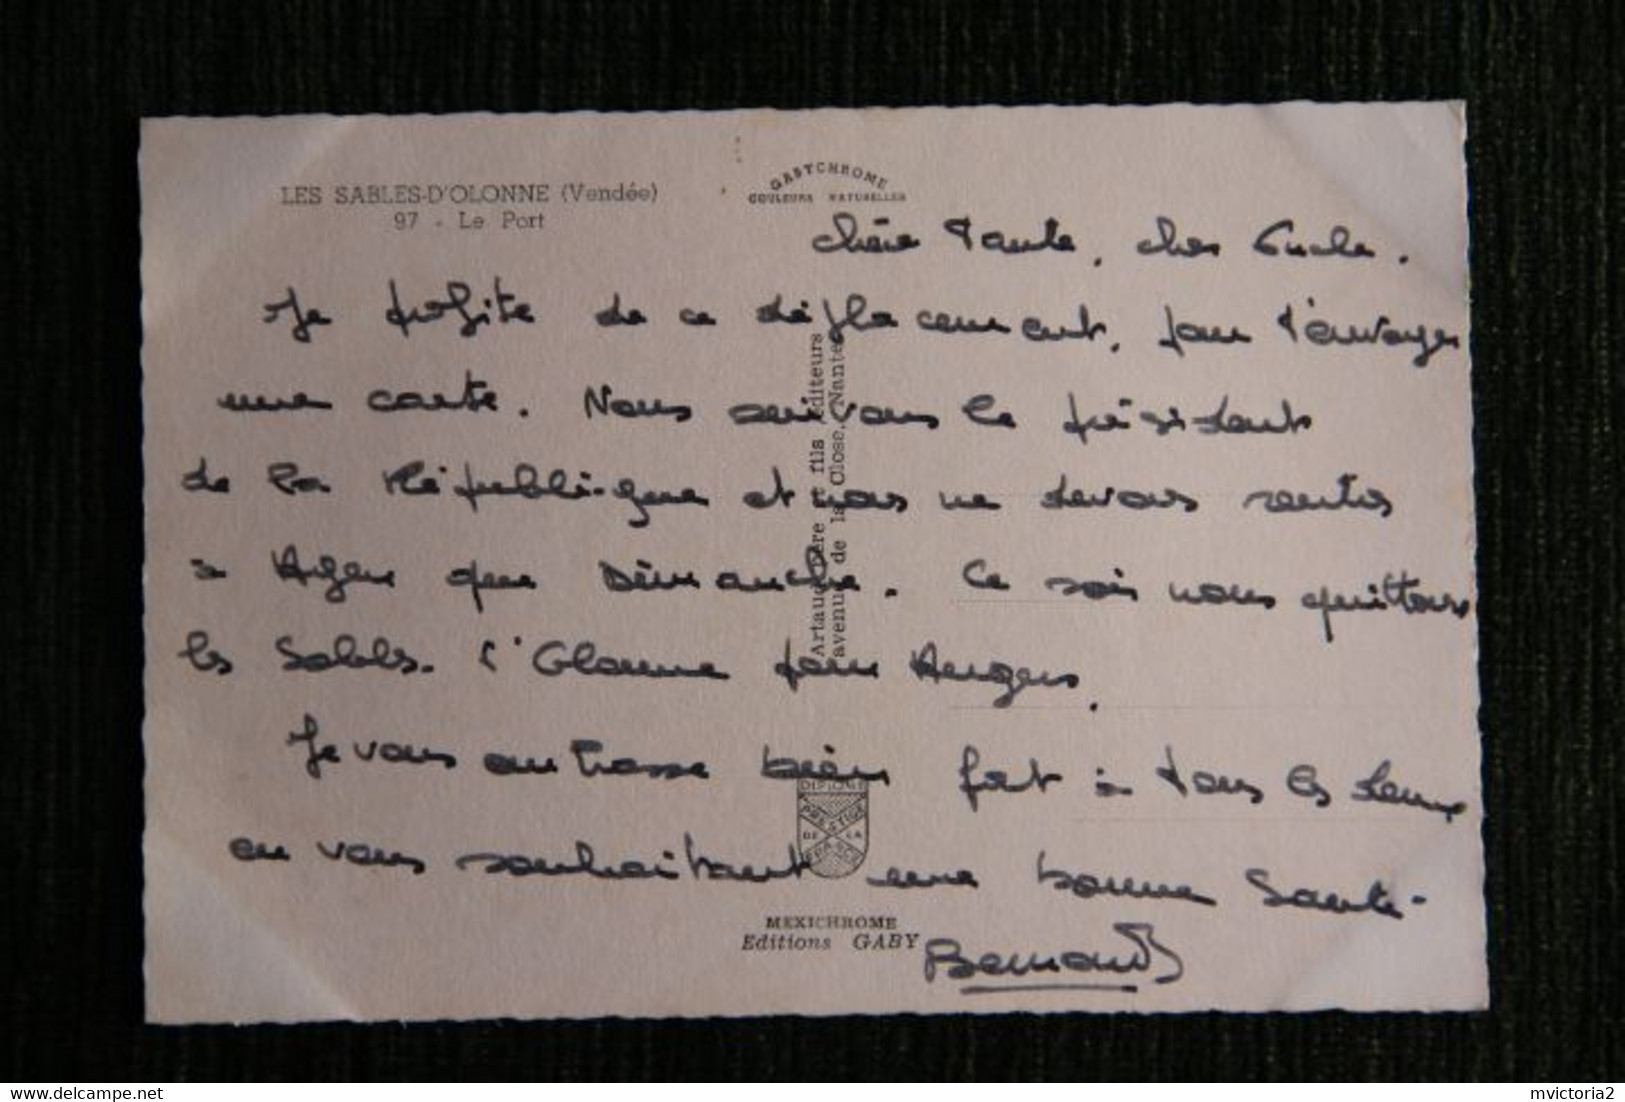 LES SABLES-D'OLONNE (Vendée)
97 - Le Port
GABYCHROME
COULEURS NATURELLES
chère Tante, cher Oncle.
Je profite de ce déplacement, pour t'envoyer
une carte. Nous suivons le président
de la République et nous ne devons rentrer
à Agen que Dimanche. Ce soir nous quittons
les Sables. l'Olonne pour Angers.
Je vous embrasse bien fort à tous les deux
en vous souhaitant une bonne Santé.
Bernard
Artaud père et fils éditeurs
avenue de la Close, Nantes
DIPLOME
PRESTIGE
DE LA
FRANCE
MEXICHROME
Editions GABY
mvictoria2